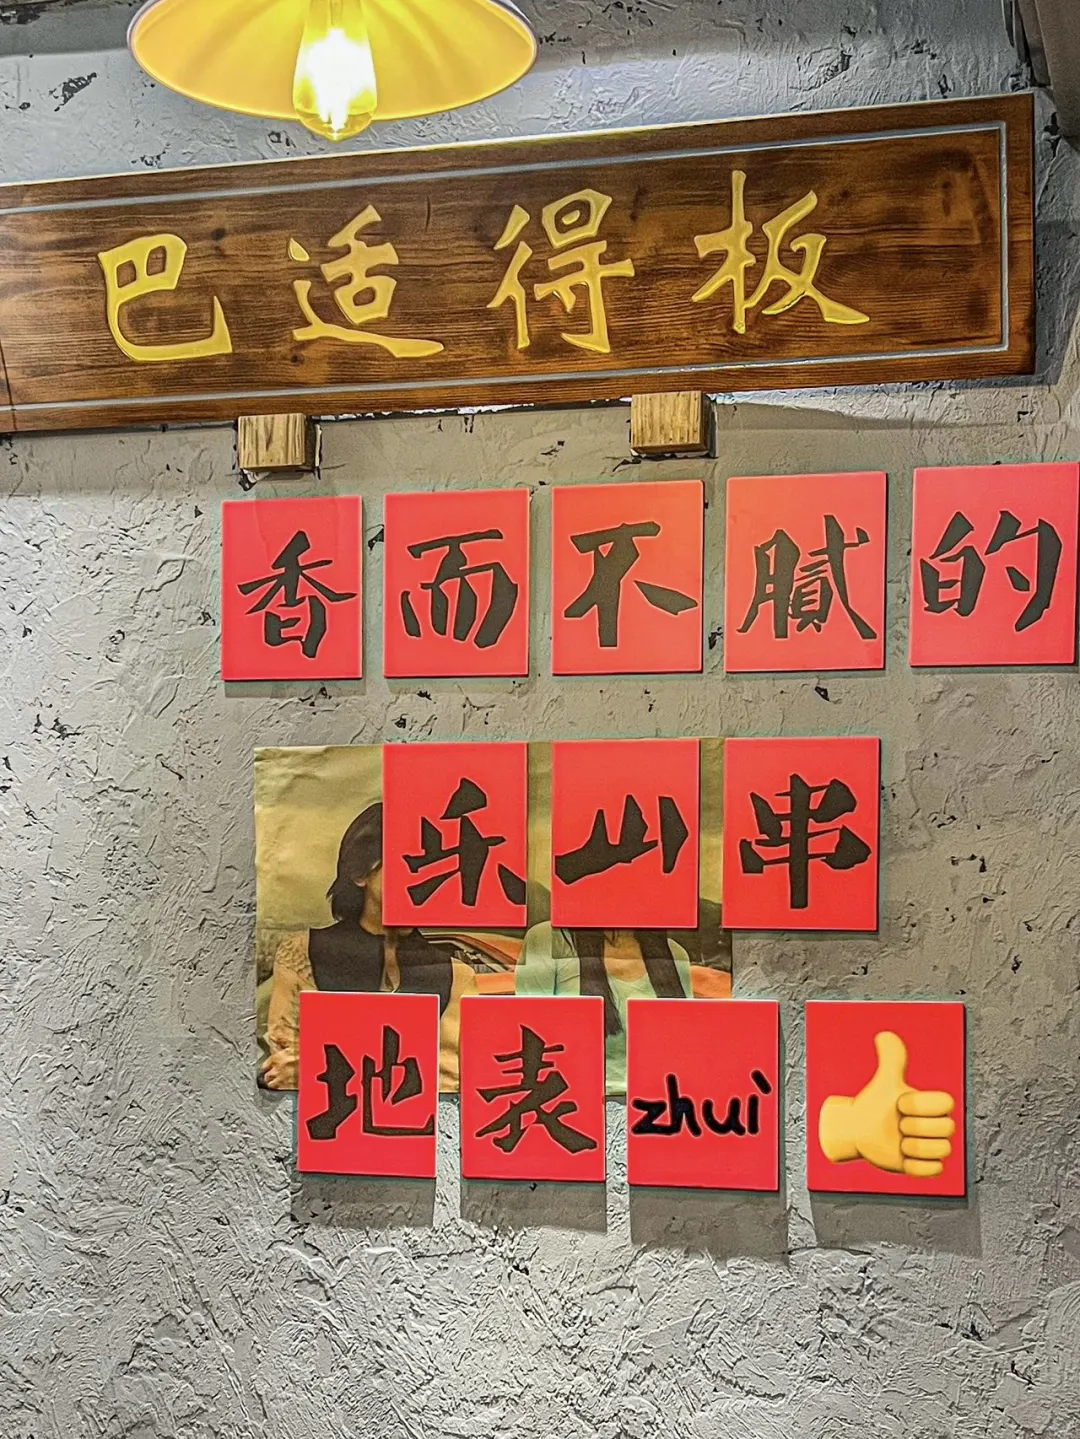 巴适得板
香而不腻的
乐山串
地表zhuì👍